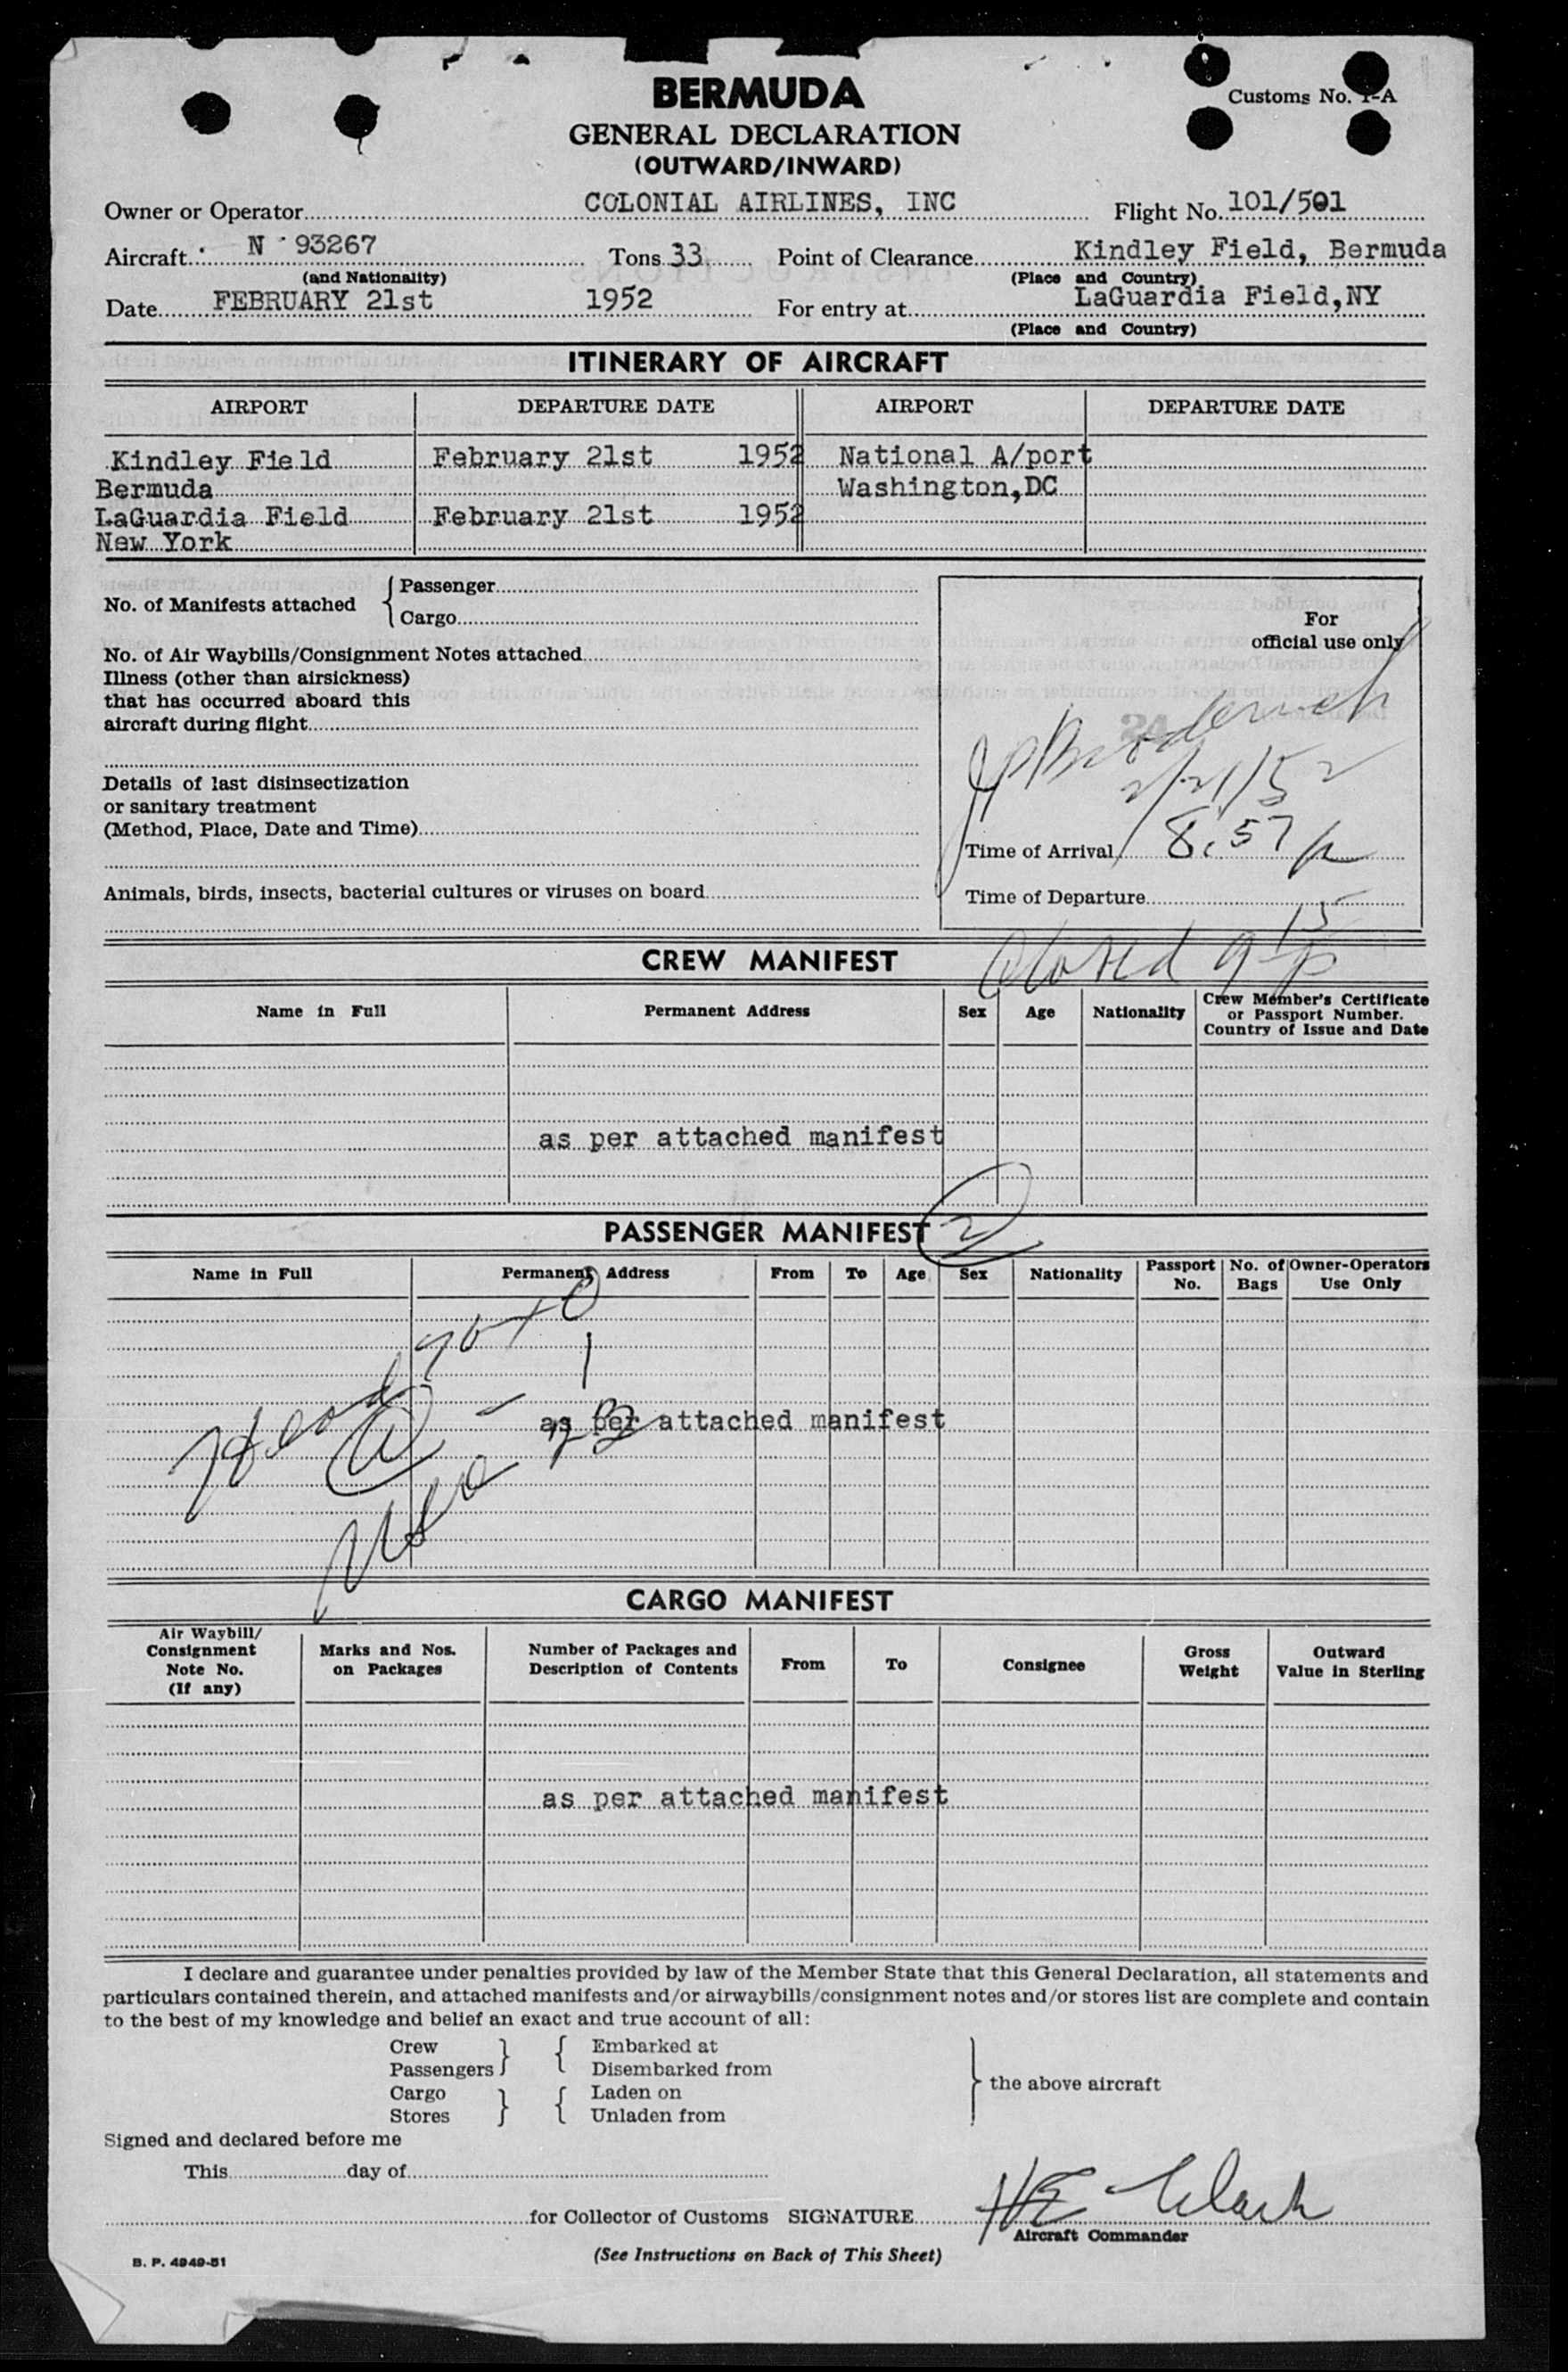 BERMUDA
Customs No. 1-A
GENERAL DECLARATION
(OUTWARD/INWARD)
Owner or Operator COLONIAL AIRLINES, INC Flight No. 101/501
Aircraft N 93267 Tons 33 Point of Clearance Kindley Field, Bermuda
(and Nationality) (Place and Country)
Date FEBRUARY 21st 1952 For entry at LaGuardia Field,NY
(Place and Country)
ITINERARY OF AIRCRAFT
AIRPORT DEPARTURE DATE AIRPORT DEPARTURE DATE
Kindley Field February 21st 1952 National A/port
Bermuda Washington,DC
LaGuardia Field February 21st 1952
New York
No. of Manifests attached { Passenger
Cargo
For
official use only
No. of Air Waybills/Consignment Notes attached
Illness (other than airsickness)
that has occurred aboard this
aircraft during flight
24
2/21/52
Details of last disinsectization
or sanitary treatment
(Method, Place, Date and Time)
Time of Arrival 8:57 p
Animals, birds, insects, bacterial cultures or viruses on board
Time of Departure
Closed 9 15 p
CREW MANIFEST
Name in Full Permanent Address Sex Age Nationality Crew Member's Certificate
or Passport Number.
Country of Issue and Date
as per attached manifest
PASSENGER MANIFEST 2
Name in Full Permanent Address From To Age Sex Nationality Passport No. No. of Bags Owner-Operators Use Only
as per attached manifest
CARGO MANIFEST
Air Waybill/
Consignment
Note No.
(If any)
Marks and Nos.
on Packages
Number of Packages and
Description of Contents
From To Consignee
Gross
Weight
Outward
Value in Sterling
as per attached manifest
I declare and guarantee under penalties provided by law of the Member State that this General Declaration, all statements and
particulars contained therein, and attached manifests and/or airwaybills/consignment notes and/or stores list are complete and contain
to the best of my knowledge and belief an exact and true account of all:
Crew } { Embarked at
Passengers Disembarked from
Cargo } { Laden on
Stores Unladen from
} the above aircraft
Signed and declared before me
This day of
for Collector of Customs SIGNATURE HE Clark
Aircraft Commander
B. P. 4949-51
(See Instructions on Back of This Sheet)